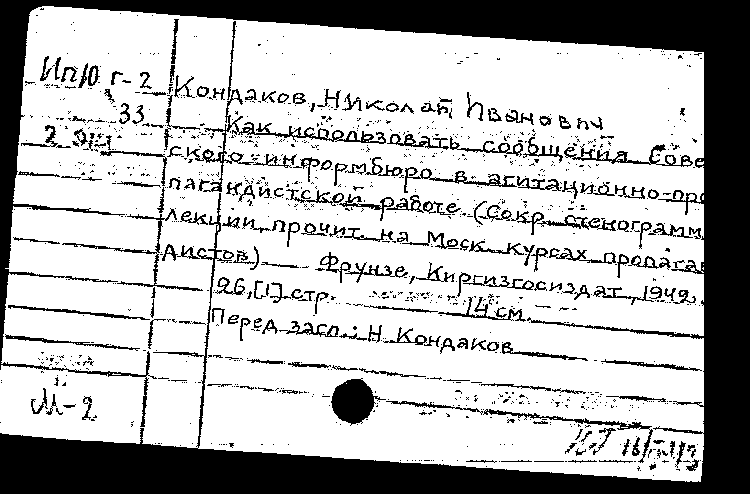 г-2
33
Кондаков, Николай Иванович
Как использовать сообщения Сове
ского-информбюро в агитационно-про
пагандистской работе (Сокр. стенограмм
лекции, прочит. на Моск. курсах пропаган
дистов). Фрунзе, Киргизгосиздат, 1942.
26,[1] стр. 14 см.
Перед загл.: Н. Кондаков
М-2